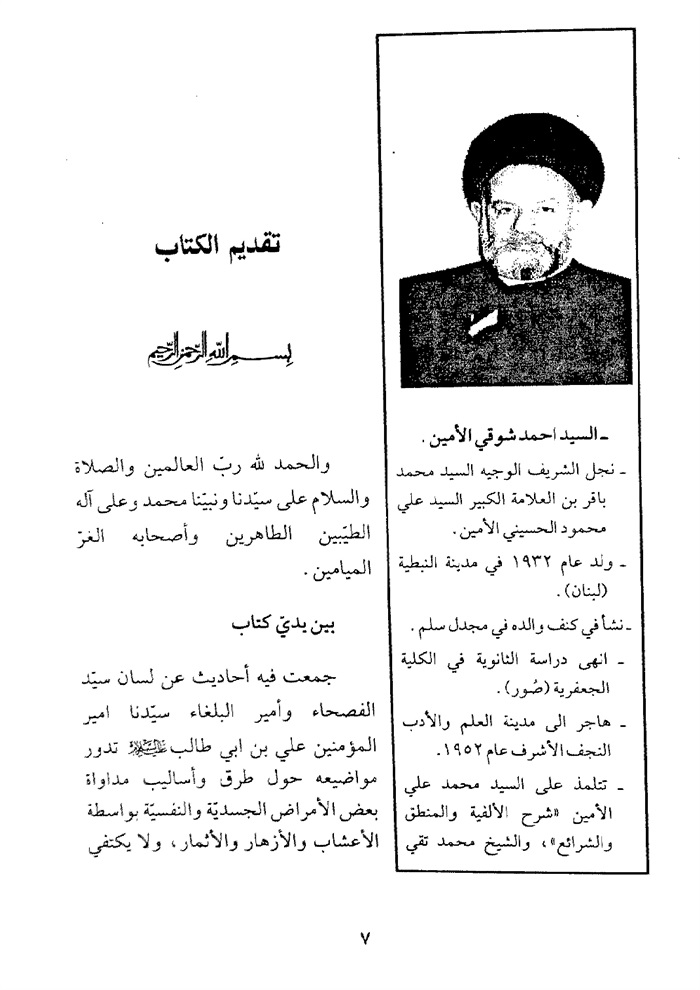 تقديم الكتاب
بسم الله الرحمن الرحيم
والحمد لله ربّ العالمين والصلاة
والسلام على سيّدنا ونبيّنا محمد وعلى آله
الطيّبين الطاهرين وأصحابه الغرّ
الميامين .
بين يديّ كتاب
جمعت فيه أحاديث عن لسان سيّد
الفصحاء وأمير البلغاء سيّدنا امير
المؤمنين علي بن ابي طالب عليه السلام تدور
مواضيعه حول طرق وأساليب مداواة
بعض الأمراض الجسديّة والنفسيّة بواسطة
الأعشاب والأزهار والأثمار، ولا يكتفي
ـ السيد احمد شوقي الأمين .
ـ نجل الشريف الوجيه السيد محمد
باقر بن العلامة الكبير السيد علي
محمود الحسيني الأمين .
ـ ولد عام ١٩٣٢ في مدينة النبطية
(لبنان) .
ـ نشأ في كنف والده في مجدل سلم .
ـ انهى دراسة الثانوية في الكلية
الجعفرية (صُور) .
ـ هاجر الى مدينة العلم والأدب
النجف الأشرف عام ١٩٥٢.
ـ تتلمذ على السيد محمد علي
الأمين «شرح الألفية والمنطق
والشرائع»، والشيخ محمد تقي
٧